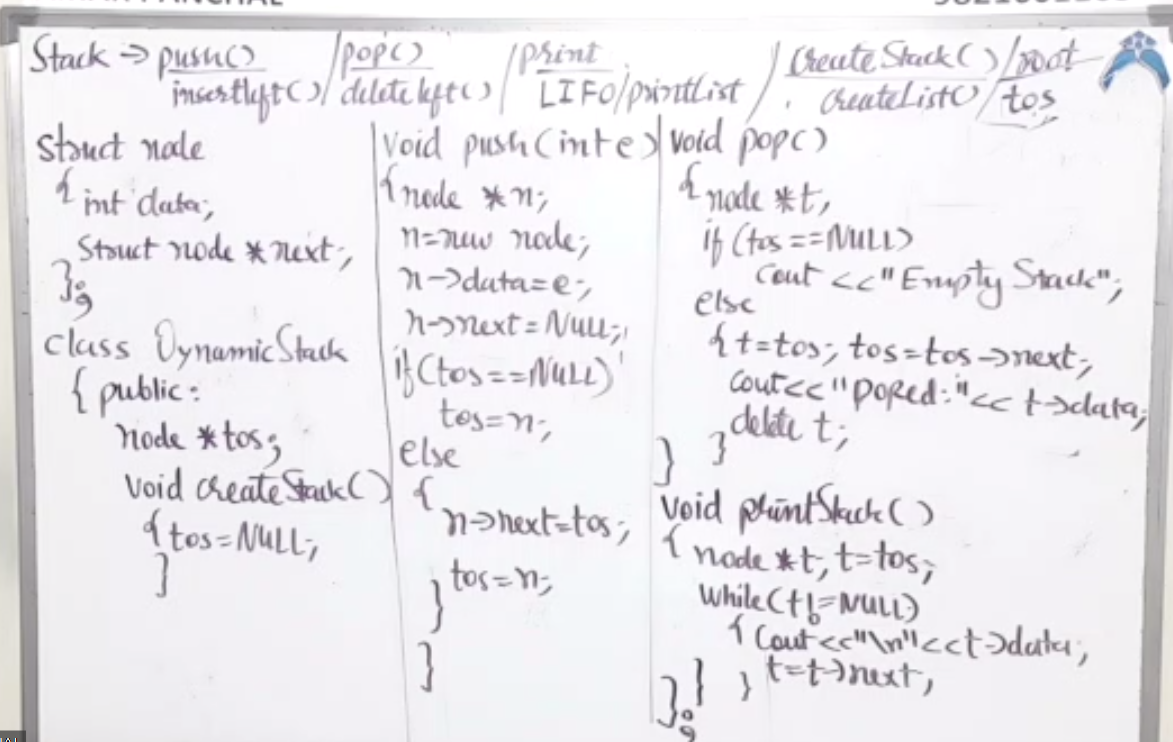 Stack → push() / pop() / print / createStack() / root
insertleft() / deleteleft() / LIFO/printList / createList() / tos
struct node
{ int data;
struct node *next;
};
class DynamicStack
{ public:
node *tos;
void createStack()
{ tos=NULL;
}
void push(int e)
{ node *n;
n=new node;
n->data=e;
n->next=NULL;
if(tos==NULL)
tos=n;
else
{
n->next=tos;
tos=n;
}
}
void pop()
{ node *t;
if(tos==NULL)
cout<<"Empty Stack";
else
{ t=tos; tos=tos->next;
cout<<"Poped:"<<t->data;
delete t;
} }
void printStack()
{ node *t, t=tos;
while(t!=NULL)
{ cout<<"\n"<<t->data;
t=t->next;
} }
};